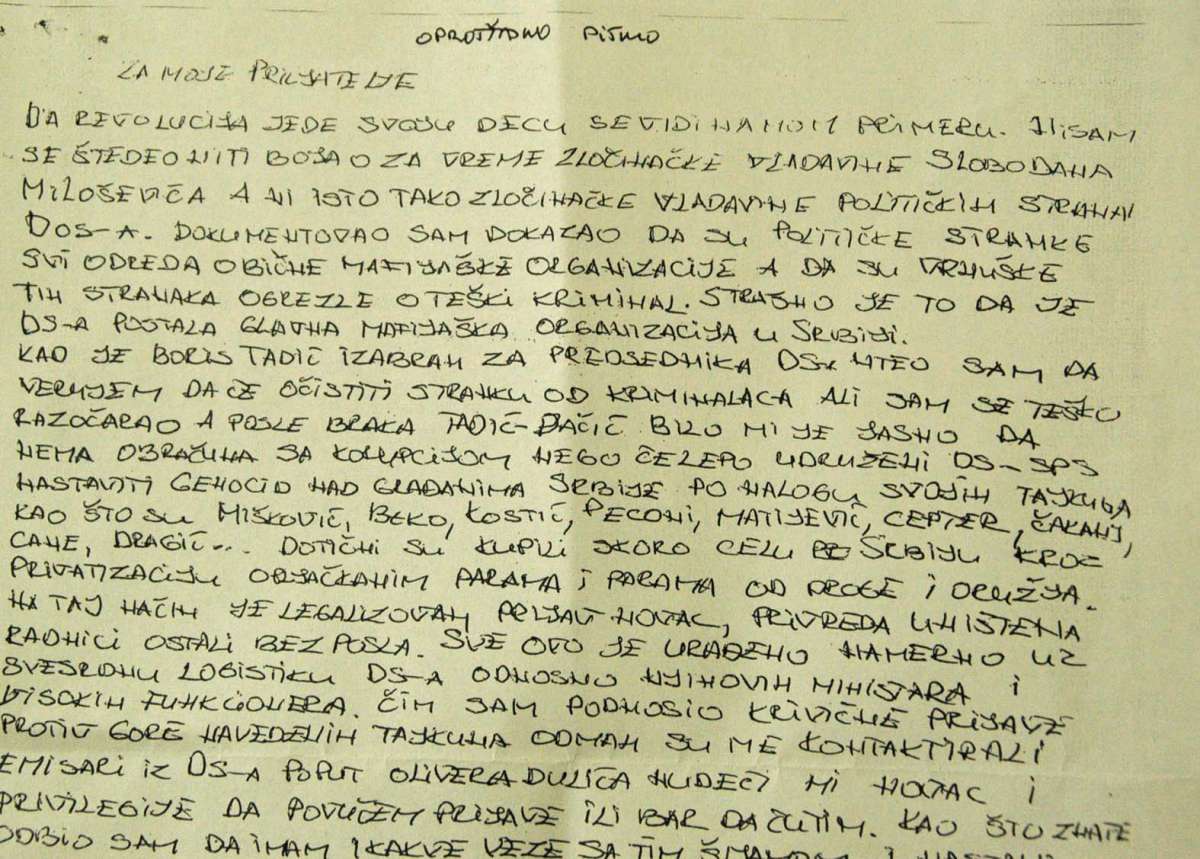 OPROŠTAJNO PISMO
ZA MOJE PRIJATELJE
DA REVOLUCIJA JEDE SVOJU DECU SE VIDI NA MOM PRIMERU. NISAM
SE ŠTEDEO NITI BOJAO ZA VREME ZLOČINAČKE VLADAVINE SLOBODANA
MILOŠEVIĆA A NI ISTO TAKO ZLOČINAČKE VLADAVINE POLITIČKIH STRANAK
DOS-A. DOKUMENTOVAO SAM DOKAZAO DA SU POLITIČKE STRANKE
SVI ODREDA OBIČNE MAFIJAŠKE ORGANIZACIJE A DA SU VRHUŠKE
TIH STRANAKA OGREZLE O TEŠKI KRIMINAL. STRAŠNO JE TO DA JE
DS-A POSTALA GLAVNA MAFIJAŠKA ORGANIZACIJA U SRBIJI.
KAO JE BORIS TADIĆ IZABRAN ZA PREDSEDNIKA DS-A HTEO SAM DA
VERUJEM DA ĆE OČISTITI STRANKU OD KRIMINALACA ALI SAM SE TEŠKO
RAZOČARAO A POSLE BRAKA TADIĆ-DAČIĆ BILO MI JE JASNO DA
NEMA OBRAČUNA SA KORUPCIJOM NEGO ĆE LEPO UDRUŽENI DS-SPS
NASTAVITI GENOCID NAD GRAĐANIMA SRBIJE PO NALOGU SVOJIH TAJKUNA
KAO ŠTO SU MIŠKOVIĆ, BEKO, KOSTIĆ, PECONI, MATIJEVIĆ, CEPTER, ČAKANJ,
CANE, DRAGIĆ... DOTIČNI SU KUPILI SKORO CELU SRBIJU KROZ
PRIVATIZACIJU OPLJAČKANIM PARAMA I PARAMA OD DROGE I ORUŽJA.
NA TAJ NAČIN JE LEGALIZOVAN PRLJAV NOVAC, PRIVREDA UNIŠTENA
RADNICI OSTALI BEZ POSLA. SVE OVO JE URAĐENO NAMERNO UZ
SVESRDNU LOGISTIKU DS-A ODNOSNO NJIHOVIH MINISTARA I
VISOKIH FUNKCIONERA. ČIM SAM PODNOSIO KRIVIČNE PRIJAVE
PROTIV GORE NAVEDENIH TAJKUNA ODMAH SU ME KONTAKTIRALI
EMISARI IZ DS-A POPUT OLIVERA DULIĆA NUDEĆI MI NOVAC I
PRIVILEGIJE DA POVUČEM PRIJAVE ILI BAR DA ĆUTIM. KAO ŠTO ZNATE
ODBIO SAM DA IMAM IKAKVE VEZE SA TIM